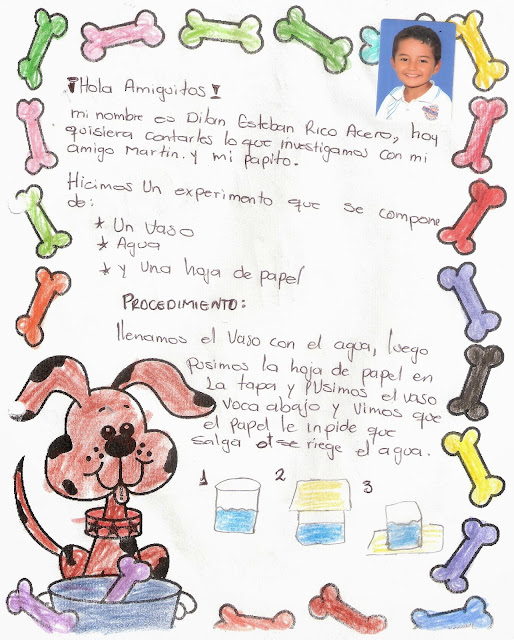 ¡Hola Amiguitos!
mi nombre es Dilan Esteban Rico Acero, hoy
quisiera contarles lo que investigamos con mi
amigo Martin. y mi papito.
Hicimos Un experimento que se compone
de:
* Un Vaso
* Agua
* y una hoja de papel
PROCEDIMIENTO:
llenamos el Vaso con el agua, luego
pusimos la hoja de papel en
La tapa y pusimos el vaso
voca abajo y vimos que
el papel le inpide que
salga o se riege el agua.
1 2 3